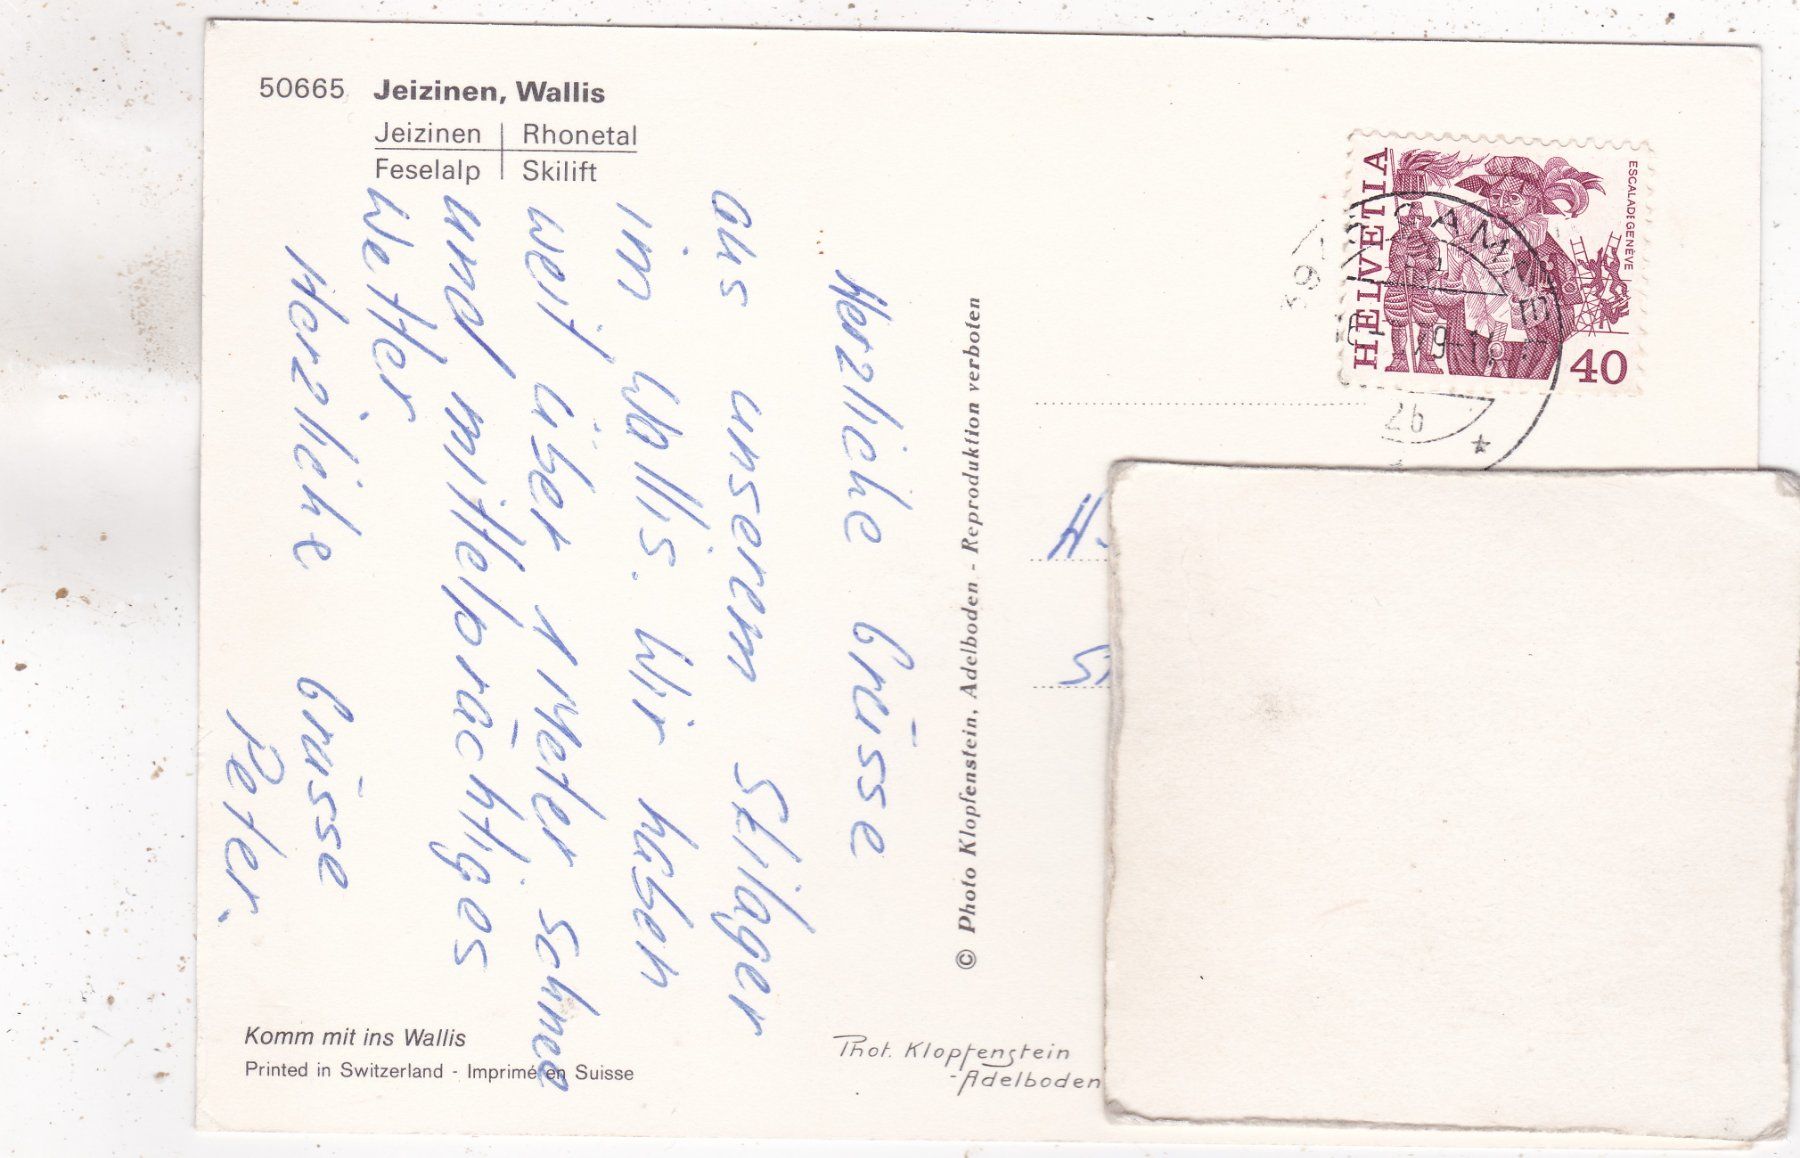 50665 Jeizinen, Wallis
Jeizinen | Rhonetal
Feselalp | Skilift
Herzliche Grüsse
aus unserem Skilager
im Wallis. Wir haben
weit über 1 Meter Schnee
und mittelprächtiges
Wetter
Herzliche Grüsse
Peter.
Komm mit ins Wallis
Printed in Switzerland - Imprimé en Suisse
© Photo Klopfenstein, Adelboden - Reproduktion verboten
Phot. Klopfenstein
-Adelboden
HELVETIA
ESCALADE GENÈVE
40
26
H.